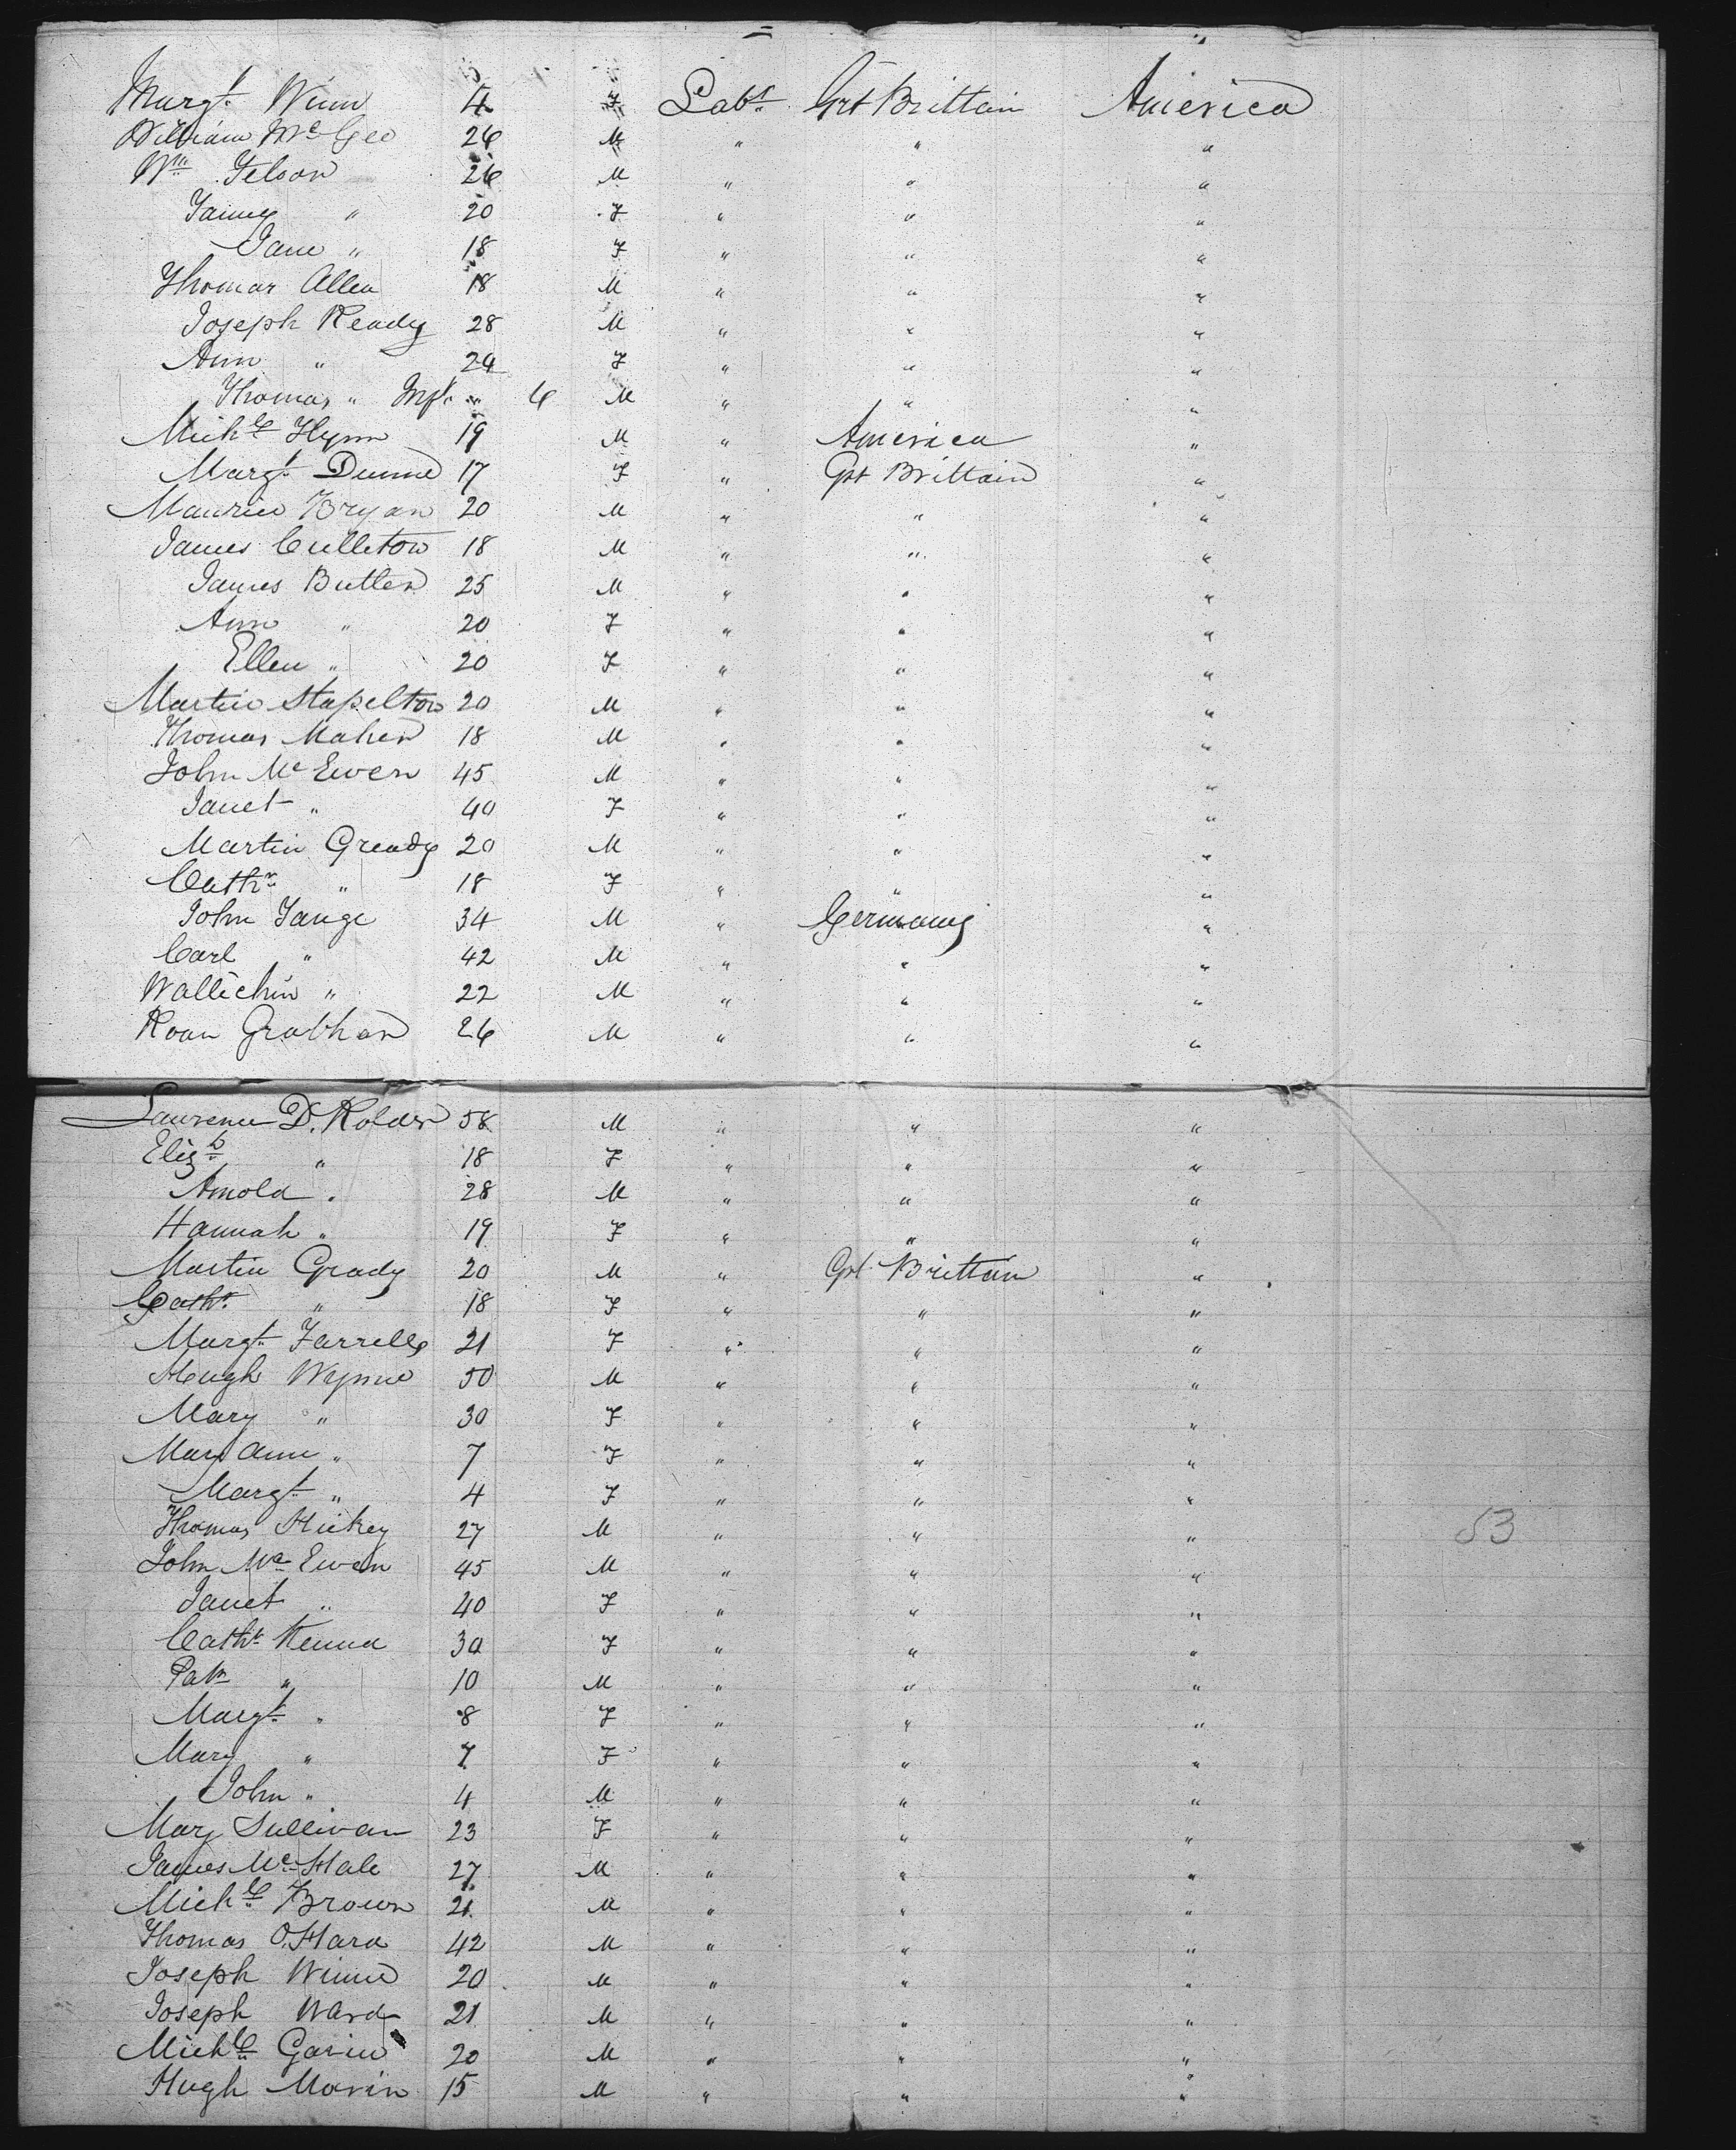 Margt. Winn 4 F Labr. Grt Brittain America
William McGee 26 M " " "
Wm. Gelson 26 M " " "
Fanny " 20 F " " "
Jane " 18 F " " "
Thomas Allen 18 M " " "
Joseph Ready 28 M " " "
Ann " 24 F " " "
Thomas " Inft. " 6 M " " "
Michl. Flynn 19 M " America "
Margt. Dunne 17 F " Grt Brittain "
Maurice Bryan 20 M " " "
James Culleton 18 M " " "
James Butler 25 M " " "
Ann " 20 F " " "
Ellen " 20 F " " "
Martin Stapelton 20 M " " "
Thomas Maher 18 M " " "
John McEwen 45 M " " "
Janet " 40 F " " "
Martin Gready 20 M " " "
Cathr. " 18 F " " "
John Lange 34 M " Germany "
Carl " 42 M " " "
Wallichin " 22 M " " "
Roan Grabhan 26 M " " "
Laurence D. Kolder 58 M " " "
Elizb. " 18 F " " "
Arnold " 28 M " " "
Hannah " 19 F " " "
Martin Grady 20 M " Grt Brittain "
Cathr. " 18 F " " "
Margt. Farrelly 21 F " " "
Hugh Wynne 50 M " " "
Mary " 30 F " " "
Mary Ann " 7 F " " "
Margt. " 4 F " " "
Thomas Hickey 27 M " " "
53
John McEwen 45 M " " "
Janet " 40 F " " "
Cathr. Kenna 30 F " " "
Patk. " 10 M " " "
Margt. " 8 F " " "
Mary " 7 F " " "
John " 4 M " " "
Mary Sullivan 23 F " " "
James McHale 27 M " " "
Michl. Brown 21 M " " "
Thomas O.Hara 42 M " " "
Joseph Winne 20 M " " "
Joseph Ward 21 M " " "
Michl. Gavin 20 M " " "
Hugh Mavin 15 M " " "